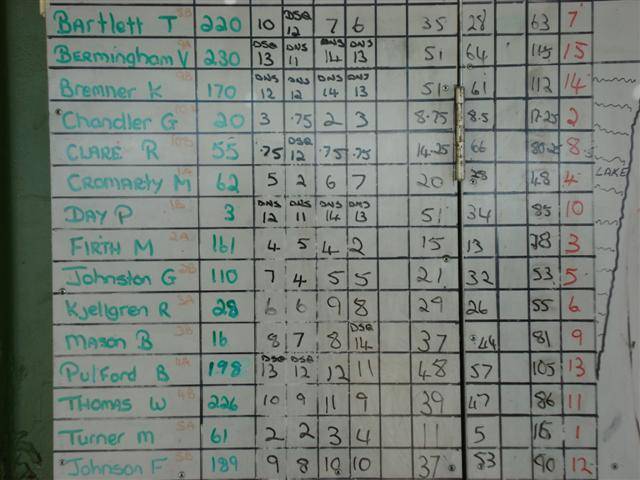 Bartlett T 220 10 DSQ 12 7 6 35 28 63 7
Bermingham V 230 DSQ 13 DNS 11 DNS 14 DNS 13 51 64 115 15
Bremner K 170 DNS 12 DNS 12 DNS 14 DNS 13 51 61 112 14
Chandler G 20 3 .75 2 3 8.75 8.5 17.25 2
CLARE R 55 .75 DSQ 12 .75 .75 14.25 66 80.25 8
CROMARTY M 62 5 2 6 7 20 48 4 LAKE
DAY P 3 DNS 12 DNS 11 DNS 14 DNS 13 51 34 85 10
FIRTH M 161 4 5 4 2 15 13 28 3
Johnston G 110 7 4 5 5 21 32 53 5
Kjellgren R 28 6 6 9 8 29 26 55 6
Mason B 16 8 7 8 DSQ 14 37 44 81 9
PulFord B 198 DSQ 13 DSQ 12 12 11 48 57 105 13
THOMAS W 226 10 9 11 9 39 47 86 11
Turner M 61 2 2 3 4 11 5 16 1
Johnson F 189 9 8 10 10 37 53 90 12